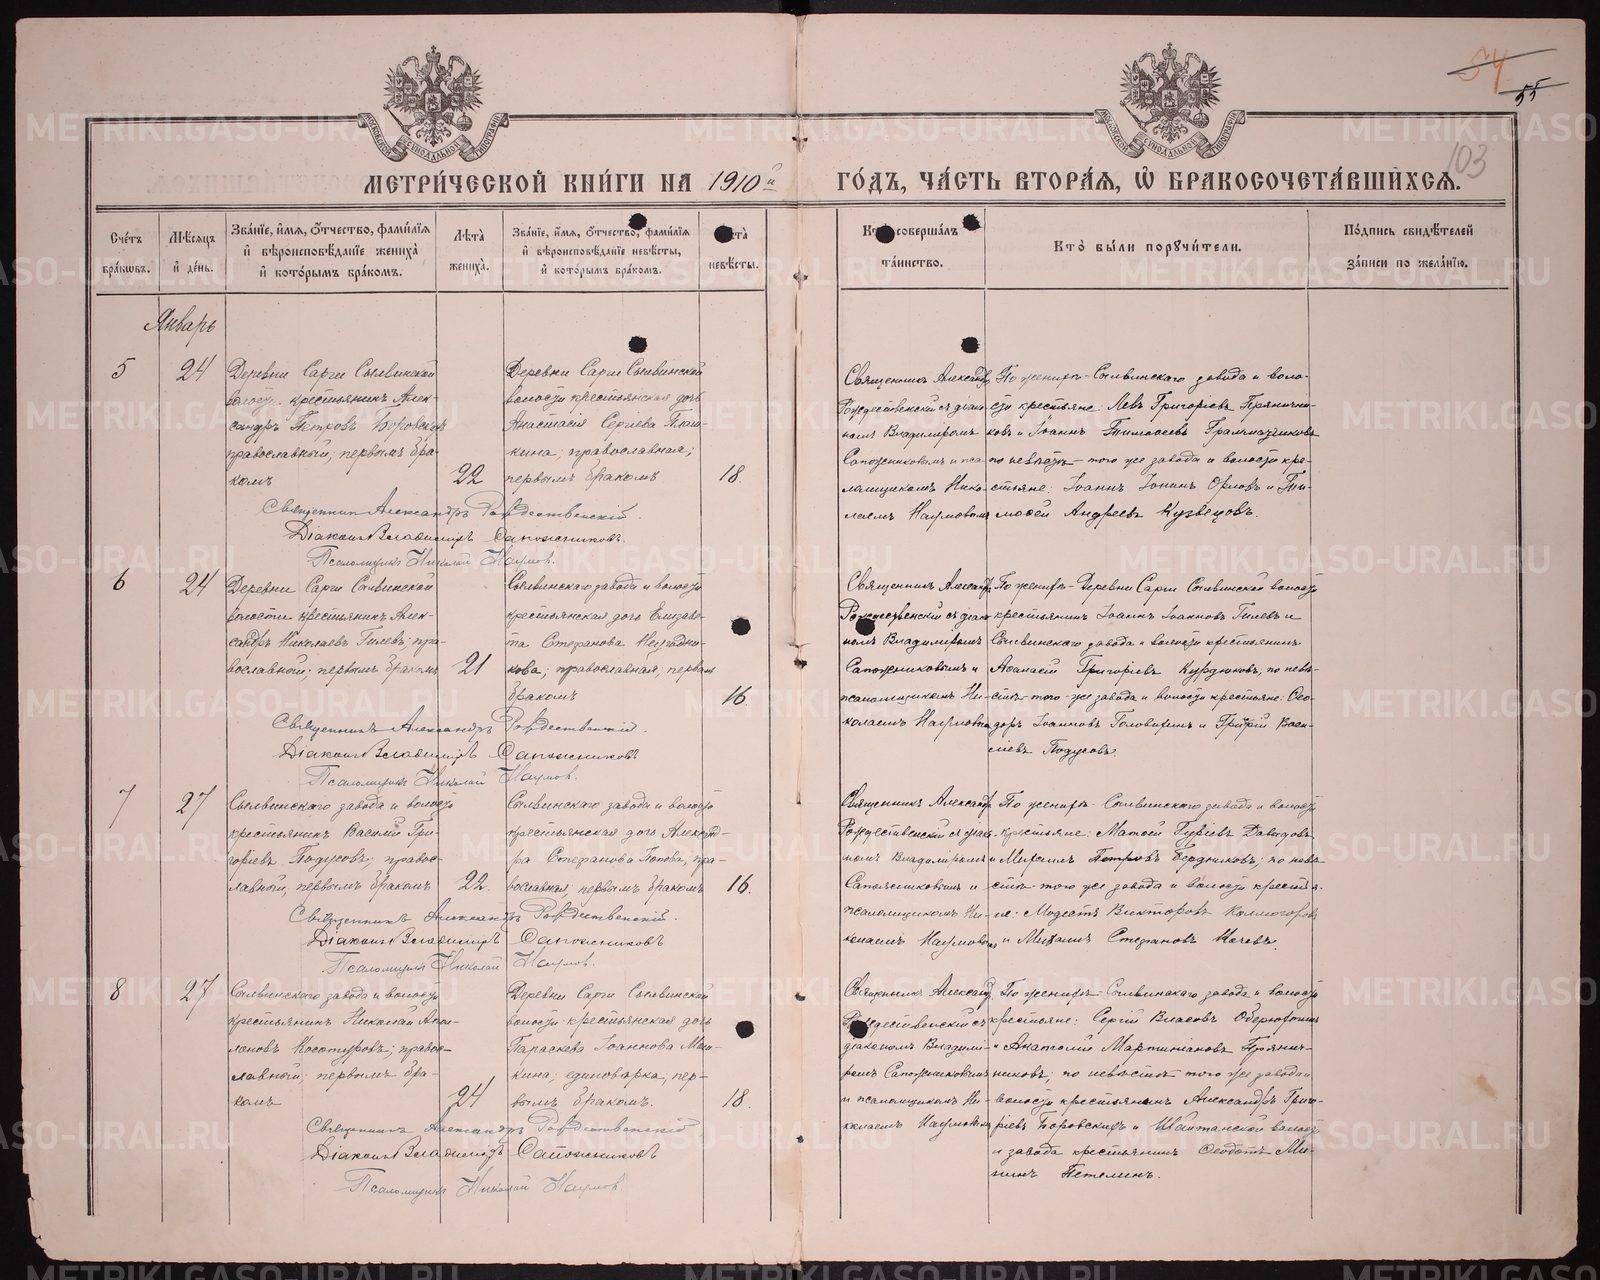 54
55
103
МОСКОВСКОЙ СѴНОДАЛЬНОЙ ТИПОГРАФІИ
МОСКОВСКОЙ СѴНОДАЛЬНОЙ ТИПОГРАФІИ
МЕТРИ́ЧЕСКОЙ КНИ́ГИ НА 1910й ГО́ДЪ, ЧА́СТЬ ВТОРА́Я, Ѽ БРАКОСОЧЕТА́ВШИХСЯ.
Сче́тъ бра́ковъ.
Мѣ́сяцъ и҆ де́нь.
Зва́нїе, и҆́мя, о҆́тчество, фами́лїя и҆ вѣроисповѣ́данїе жениха̀ и҆ кото́рымъ бра́комъ.
Лѣ́та жениха̀.
Зва́нїе, и҆́мя, о҆́тчество, фами́лїя и҆ вѣроисповѣ́данїе невѣ́сты, и҆ кото́рымъ бра́комъ.
невѣ́сты.
соверша́лъ та́инство.
Кто̀ бы́ли порꙋчи́тели.
По́дпись свидѣ́телей за́писи по жела́нїю.
Январь
5
24
Деревни Сарги Сылвинской
волости крестьянинъ Алек-
сандръ Петровъ Боровских
православный; первымъ бра-
комъ
22
Деревни Сарги Сылвинской
волости крестьянская дочь
Анастасія Сергіева
православная;
первымъ бракомъ
18.
Священникъ Александръ
Рождественскій съ діако-
номъ Владиміромъ
Сапожниковымъ и пса-
ломщикомъ Нико-
лаемъ Наумовымъ
По женихѣ – Сылвинскаго завода и воло-
сти крестьяне: Левъ Григоріевъ Прянични-
ковъ и Іоаннъ Тимоѳеевъ
по невѣстѣ – того же завода и волости кре-
стьяне: Іоаннъ Іонинъ Орловъ и Ти-
моѳей Андреевъ Кузнецовъ.
Священникъ Александръ Рождественскій.
Діаконъ Владиміръ Сапожниковъ.
Псаломщикъ Николай Наумовъ.
6
24
Деревни Сарги Сылвинской
волости крестьянинъ Алек-
сандръ Николаевъ Гилевъ; пра-
вославный; первымъ бракомъ
21
Сылвинскаго завода и волости
крестьянская дочь Елизаве-
та Стефанова
православная, первымъ
бракомъ
16.
Священникъ Александръ
Рождественскій съ діако-
номъ Владиміромъ
Сапожниковымъ и
псаломщикомъ Ни-
колаемъ Наумовымъ
По женихѣ – Деревни Сарги Сылвинской волости
крестьянинъ Іоаннъ Іоанновъ Гилевъ и
Сылвинскаго завода и волости крестьянинъ
Аѳанасій Григоріевъ Курдюковъ, по невѣ-
стѣ – того же завода и волости крестьяне: Ѳео-
доръ Іоанновъ Головизинъ и Григорій Васи-
ліевъ Подусовъ.
Священникъ Александръ Рождественскій.
Діаконъ Владиміръ Сапожниковъ
Псаломщикъ Николай Наумовъ.
7
27
Сылвинскаго завода и волости
крестьянинъ Василій Гри-
горіевъ Подусовъ; правос-
лавный, первымъ бракомъ
22.
Сылвинскаго завода и волости
крестьянская дочь Александ-
ра Стефанова Попова, пра-
вославная, первымъ бракомъ
16.
Священникъ Александръ
Рождественскій съ діако-
номъ Владиміромъ
Сапожниковымъ и
псаломщикомъ Ни-
колаемъ Наумовымъ
По женихѣ – Сылвинскаго завода и волости
крестьяне: Матѳей Гуріевъ Давидовъ
и Михаилъ Петровъ Бердниковъ; по невѣ-
стѣ того же завода и волости крестья-
не: Модестъ Викторовъ Колмогоровъ
и Михаилъ Стефановъ
Священникъ Александръ Рождественскій.
Діаконъ Владиміръ Сапожниковъ
Псаломщикъ Николай Наумовъ.
8
27
Сылвинскаго завода и волости
крестьянинъ Николай
Косотуровъ; правос-
лавный; первымъ бра-
комъ
24
Деревни Сарги Сылвинской
волости крестьянская дочь
Параскева Іоаннова
единовѣрка, пер-
вымъ бракомъ.
18.
Священникъ Александръ
Рождественскій съ
діакономъ Владимі-
ромъ Сапожниковымъ
и псаломщикомъ Ни-
колаемъ Наумовымъ
По женихѣ – Сылвинскаго завода и волости
крестьяне: Сергій Власовъ Оберюхтинъ
и Анатолій Мартиніановъ Прянич-
никовъ; по невѣстѣ того же завода и
волости крестьянинъ Александръ Григо-
ріевъ Боровскихъ и Шайтанской волости
и завода крестьянинъ Ѳеодотъ Ми-
нинъ Петелинъ.
Священникъ Александръ Рождественскій
Діаконъ Владиміръ Сапожниковъ
Псаломщикъ Николай Наумовъ.
METRIKI.GASO-URAL.RU